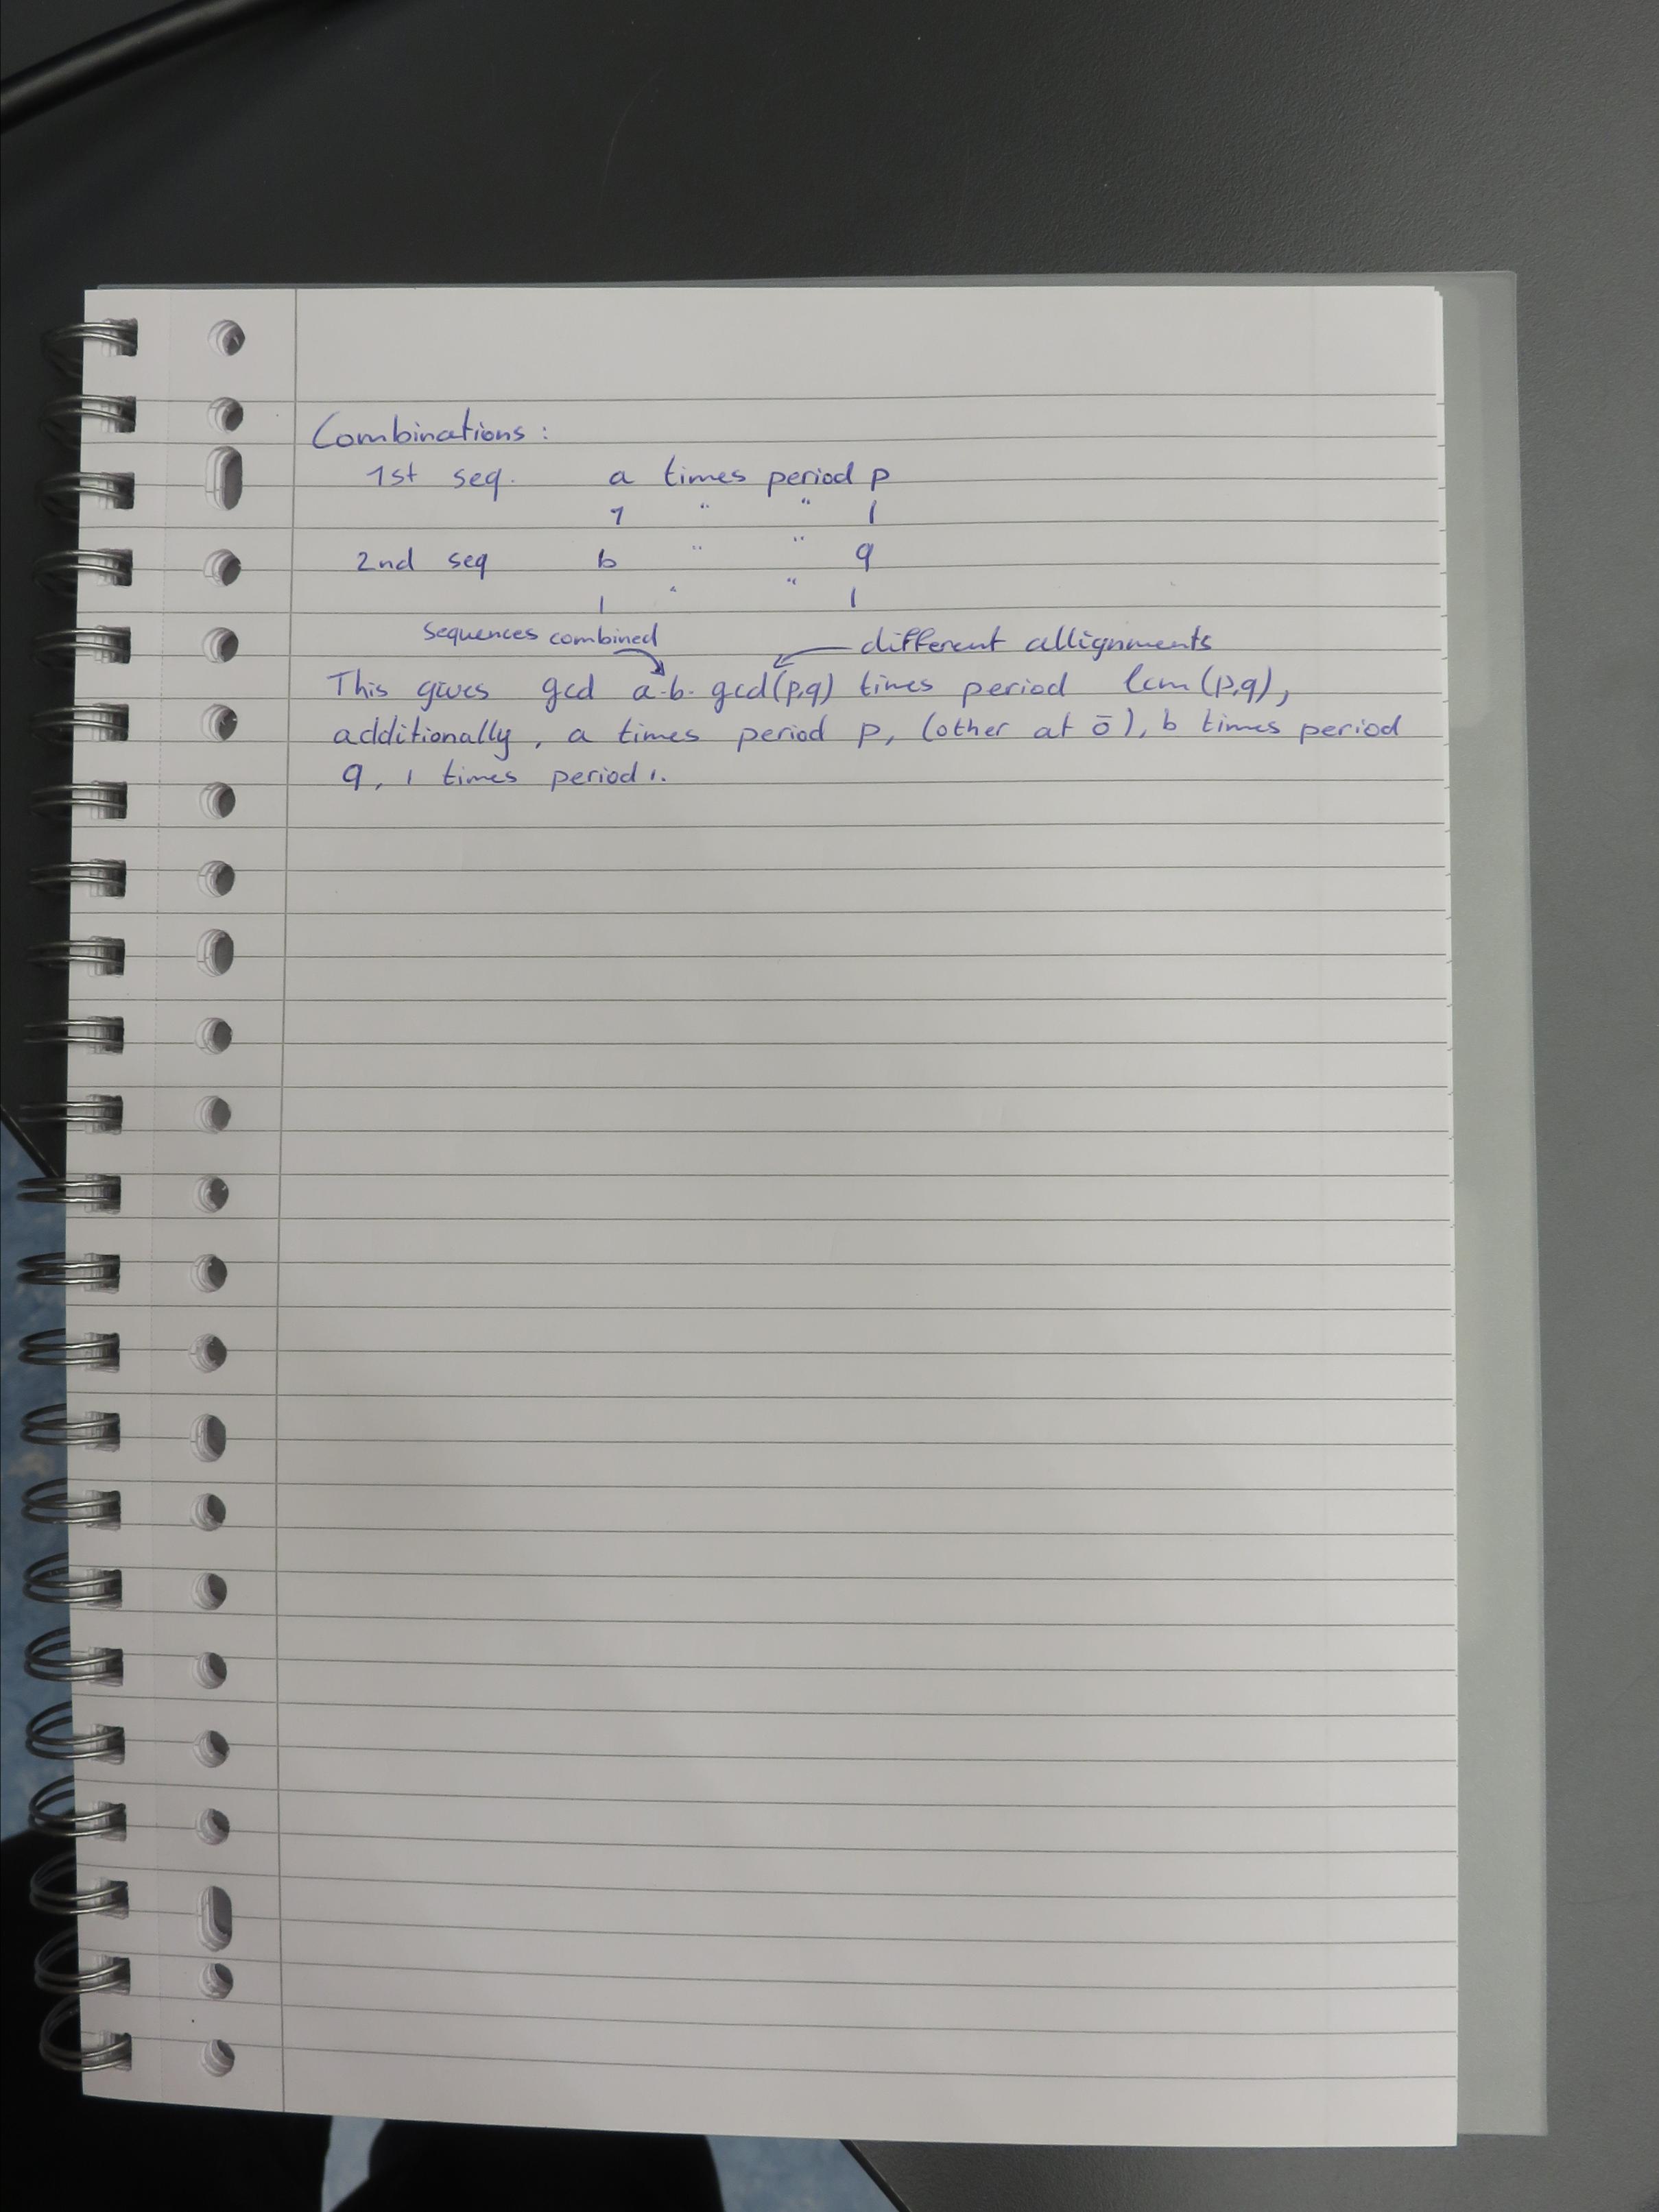 Combinations :
1st seq. a times period p
1 " " 1
2nd seq b " " q
1 " " 1
sequences combined different allignments
This gives gcd a·b· gcd(p,q) times period lcm (p,q),
additionally, a times period p, (other at ō), b times period
q, 1 times period 1.